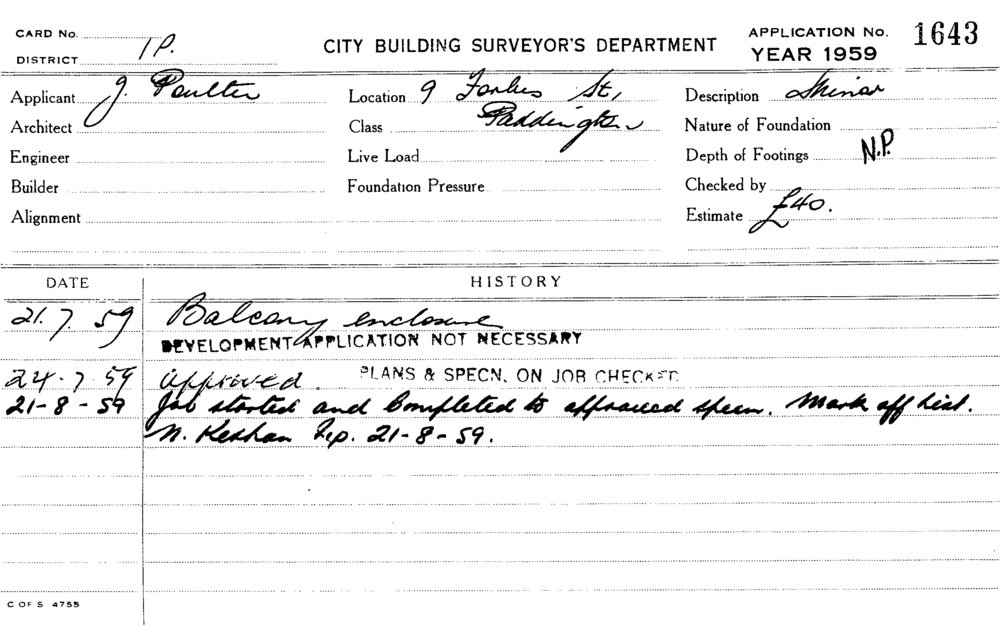 CARD No.
DISTRICT 1P.
CITY BUILDING SURVEYOR'S DEPARTMENT
APPLICATION No. 1643
YEAR 1959
Applicant J. Poulter
Location 9 Forbes St,
Description Minor
Architect
Class Paddington
Nature of Foundation
Engineer
Live Load
Depth of Footings N.P.
Builder
Foundation Pressure
Checked by
Alignment
Estimate £40.
DATE HISTORY
21.7.59 Balcony enclosure
DEVELOPMENT APPLICATION NOT NECESSARY
24.7.59 Approved. PLANS & SPECN. ON JOB CHECKED
21-8-59 Job started and Completed to approved specn. Mark off list.
N. 21-8-59.
C OF S 4755